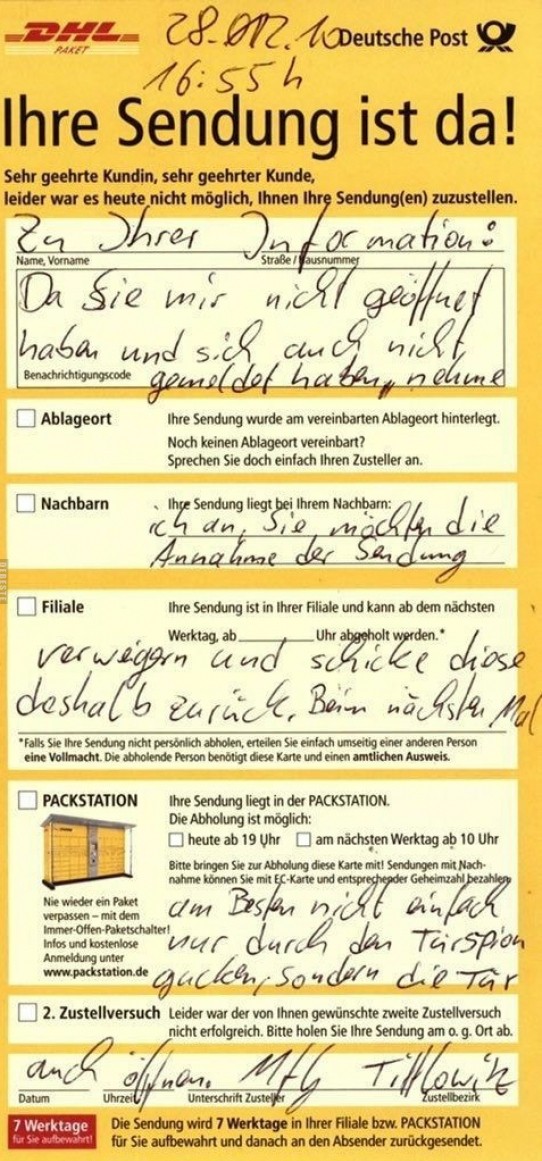 DHL
PAKET
28.012.10
Deutsche Post
16:55h
Ihre Sendung ist da!
Sehr geehrte Kundin, sehr geehrter Kunde,
leider war es heute nicht möglich, Ihnen Ihre Sendung(en) zuzustellen.
Zu Ihrer Information:
Name, Vorname Straße / Hausnummer
Da Sie mir nicht geöffnet
haben und sich auch nicht
Benachrichtigungscode gemeldet haben, nehme
Ablageort Ihre Sendung wurde am vereinbarten Ablageort hinterlegt.
Noch keinen Ablageort vereinbart?
Sprechen Sie doch einfach Ihren Zusteller an.
Nachbarn Ihre Sendung liegt bei Ihrem Nachbarn:
ich an, Sie möchten die
Annahme der Sendung
Filiale Ihre Sendung ist in Ihrer Filiale und kann ab dem nächsten
Werktag, ab Uhr abgeholt werden.*
verweigern und schicke diese
deshalb zurück. Beim nächsten Mal
*Falls Sie Ihre Sendung nicht persönlich abholen, erteilen Sie einfach umseitig einer anderen Person
eine Vollmacht. Die abholende Person benötigt diese Karte und einen amtlichen Ausweis.
PACKSTATION Ihre Sendung liegt in der PACKSTATION.
Die Abholung ist möglich:
heute ab 19 Uhr am nächsten Werktag ab 10 Uhr
Bitte bringen Sie zur Abholung diese Karte mit! Sendungen mit Nach-
nahme können Sie mit EC-Karte und entsprechender Geheimzahl bezahlen.
Nie wieder ein Paket
verpassen – mit dem
Immer-Offen-Paketschalter!
Infos und kostenlose
Anmeldung unter
www.packstation.de
am Besten nicht einfach
nur durch den Türspion
gucken, sondern die Tür
2. Zustellversuch Leider war der von Ihnen gewünschte zweite Zustellversuch
nicht erfolgreich. Bitte holen Sie Ihre Sendung am o. g. Ort ab.
auch öffnen. Mfg Tittlowitz
Datum Uhrzeit Unterschrift Zusteller Zustellbezirk
7 Werktage
für Sie aufbewahrt!
Die Sendung wird 7 Werktage in Ihrer Filiale bzw. PACKSTATION
für Sie aufbewahrt und danach an den Absender zurückgesendet.